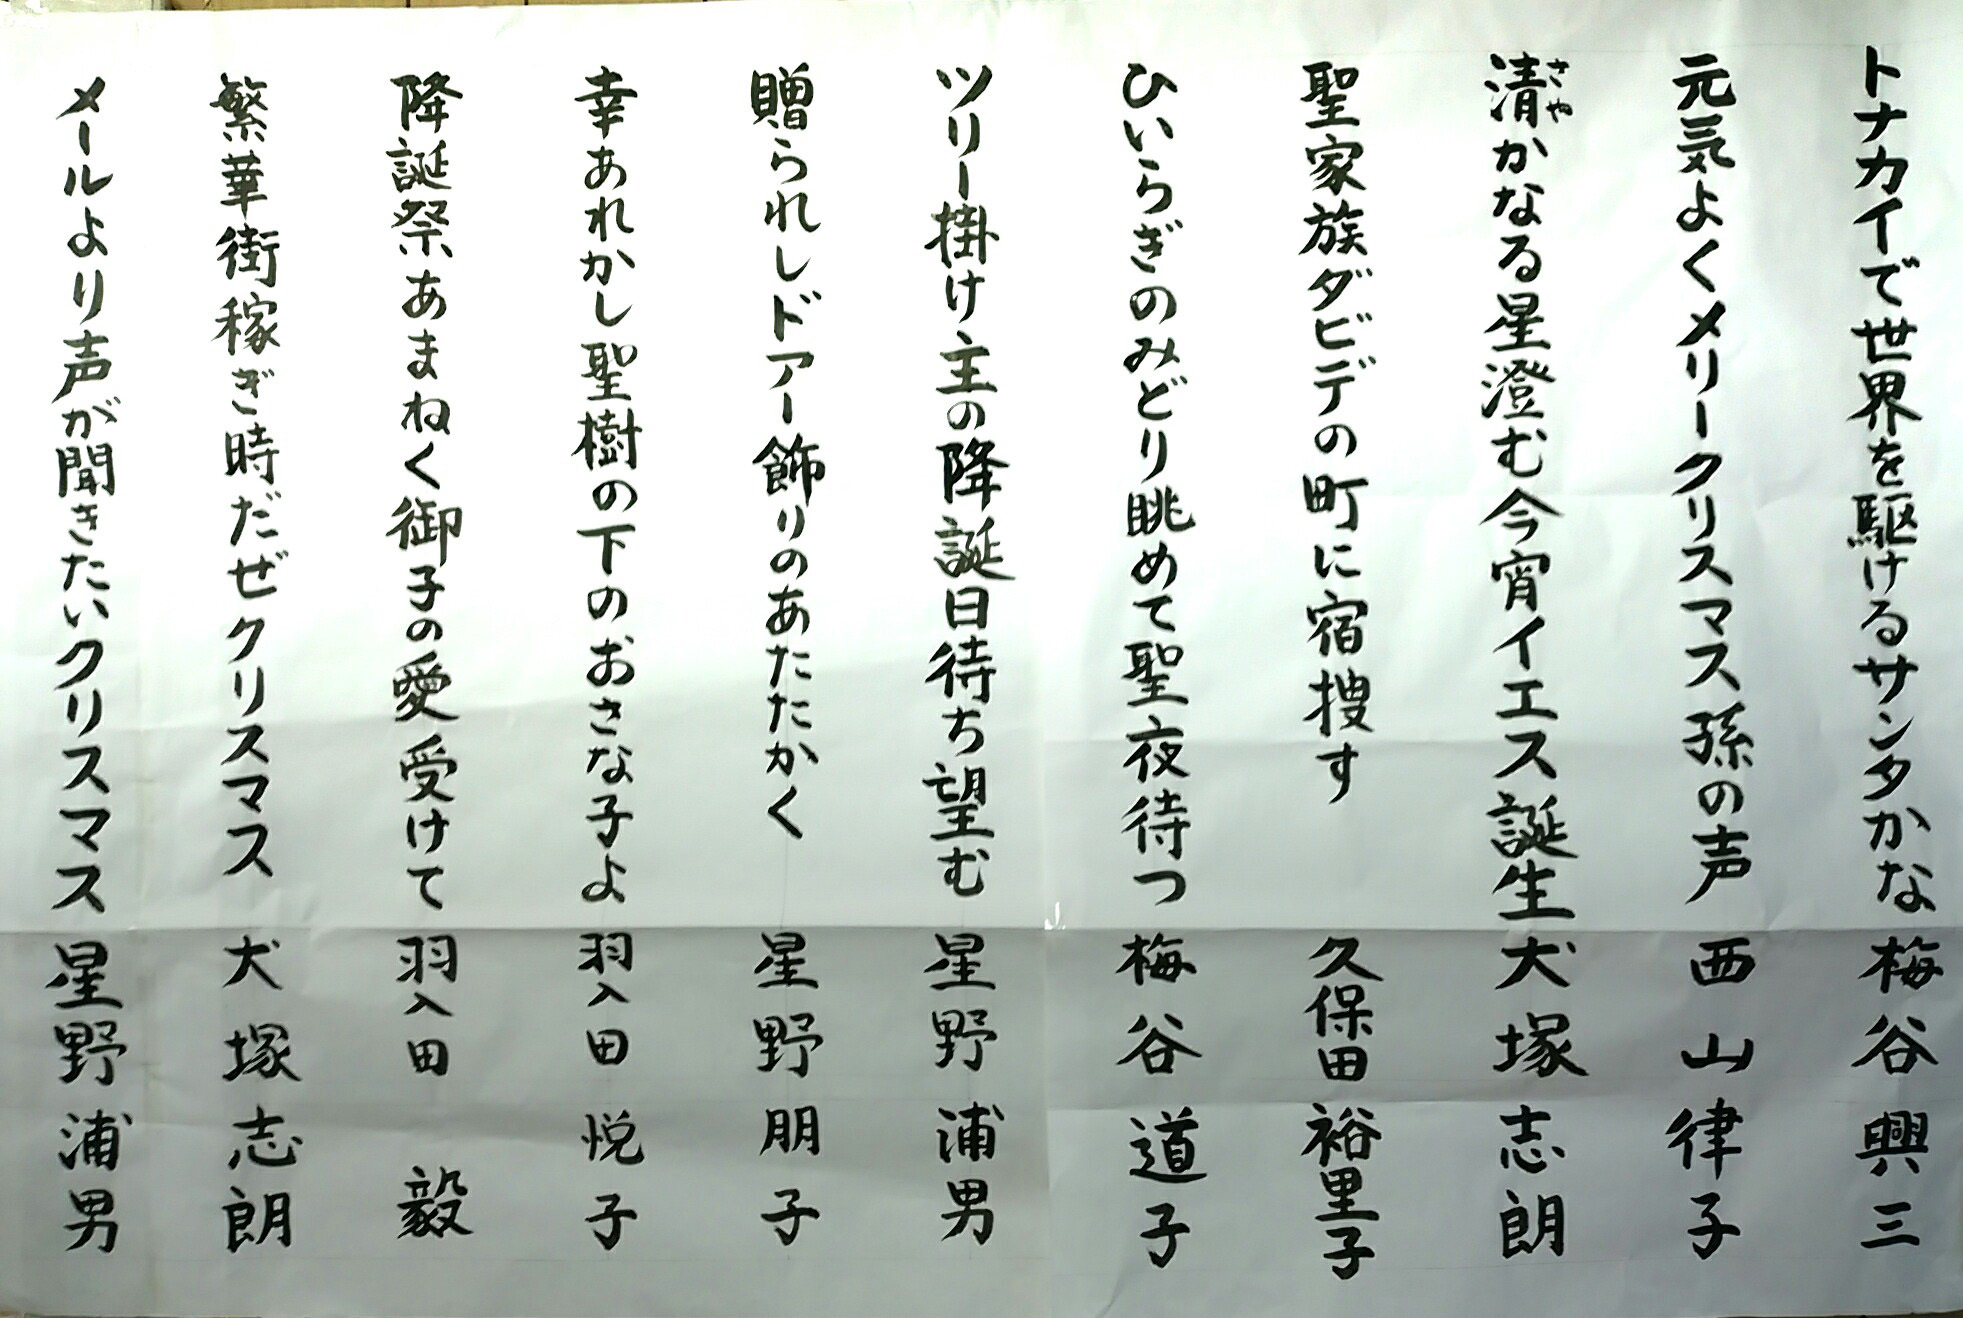 トナカイで世界を駆けるサンタかな 梅谷興三
元気よくメリークリスマス孫の声 西山律子
清かなる星澄む今宵イエス誕生 犬塚志朗
さや
聖家族ダビデの町に宿捜す 久保田裕里子
ひいらぎのみどり眺めて聖夜待つ 梅谷道子
ツリー掛け主の降誕日待ち望む 星野浦男
贈られしドアー飾りのあたたかく 星野朋子
幸あれかし聖樹の下のおさな子よ 羽入田悦子
降誕祭あまねく御子の愛受けて 羽入田毅
繁華街稼ぎ時だぜクリスマス 犬塚志朗
メールより声が聞きたいクリスマス 星野浦男